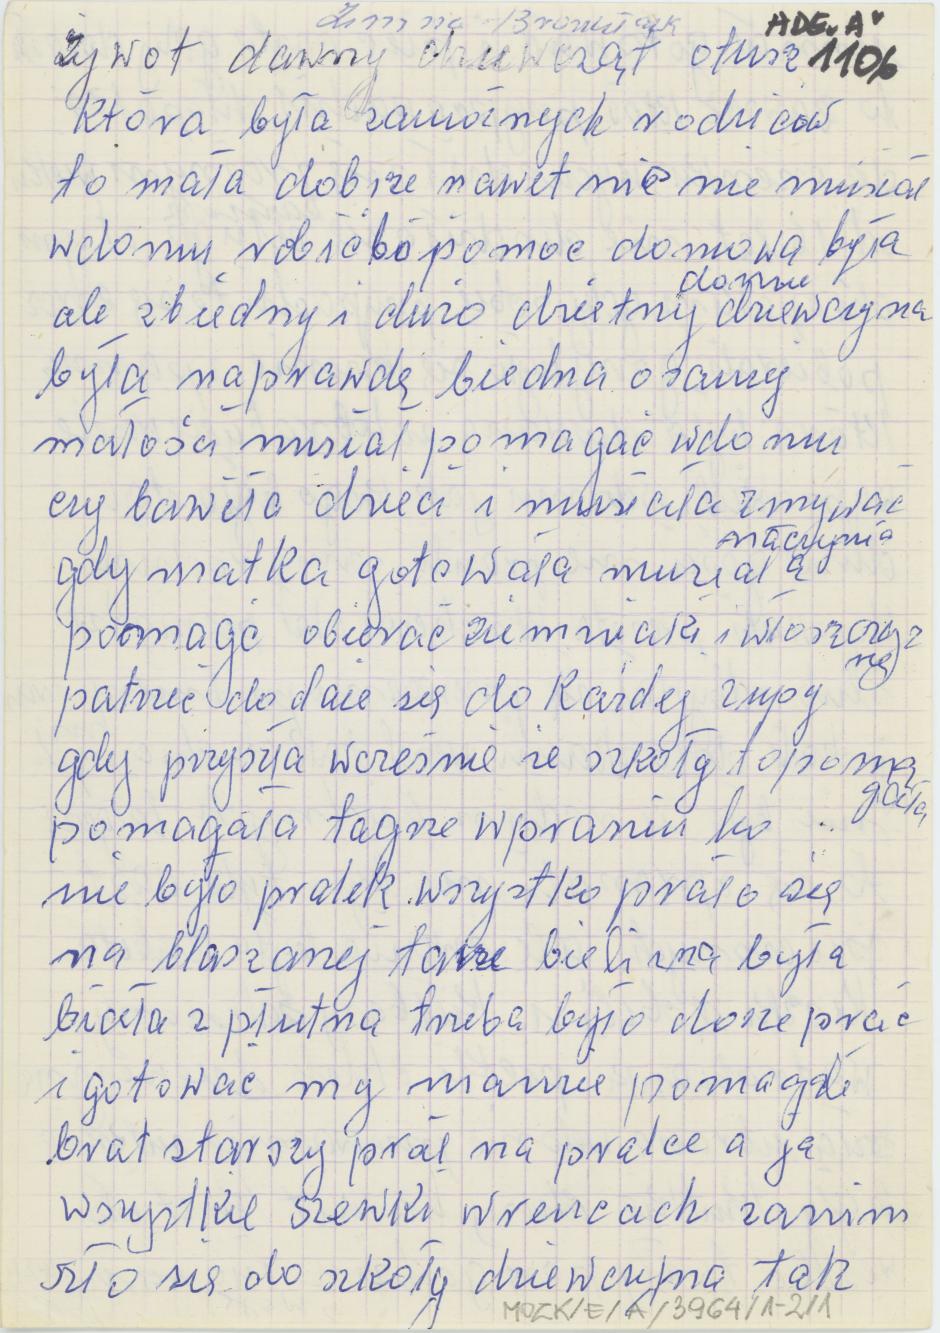 ADE "A"
1106
żywot dawny dziewcząt otusz
która była zamożnych rodziców
to miała dobrze nawet nic nie musiał
wdomu robić bo pomoc domowa była
ale zbiedny i dużo dzietny domu dziewczyna
była naprawdę biedna osamej
małości musiał pomagać wdomu
czy bawiła dzieci i musiała zmywać
naczynia
gdy matka gotowała musiała
pomagć obierać ziemniaki i włoszczyz
nę
patrzeć dodaie się do każdej zupy
gdy przyszła wcześnie ze szkoły topoma
gała
pomagała tagże wpraniu bo
nie było pralek wszystko prało się
na blaszanej tarze bielizna była
biała z płutna trzeba było dosze prać
i gotować my mamie pomagali
brat starszy prał na pralce a ja
wszystkie szewki wrencach zanim
szło się do szkoły dziewczyna tak
MOZK/E/A/3964/1-2/1